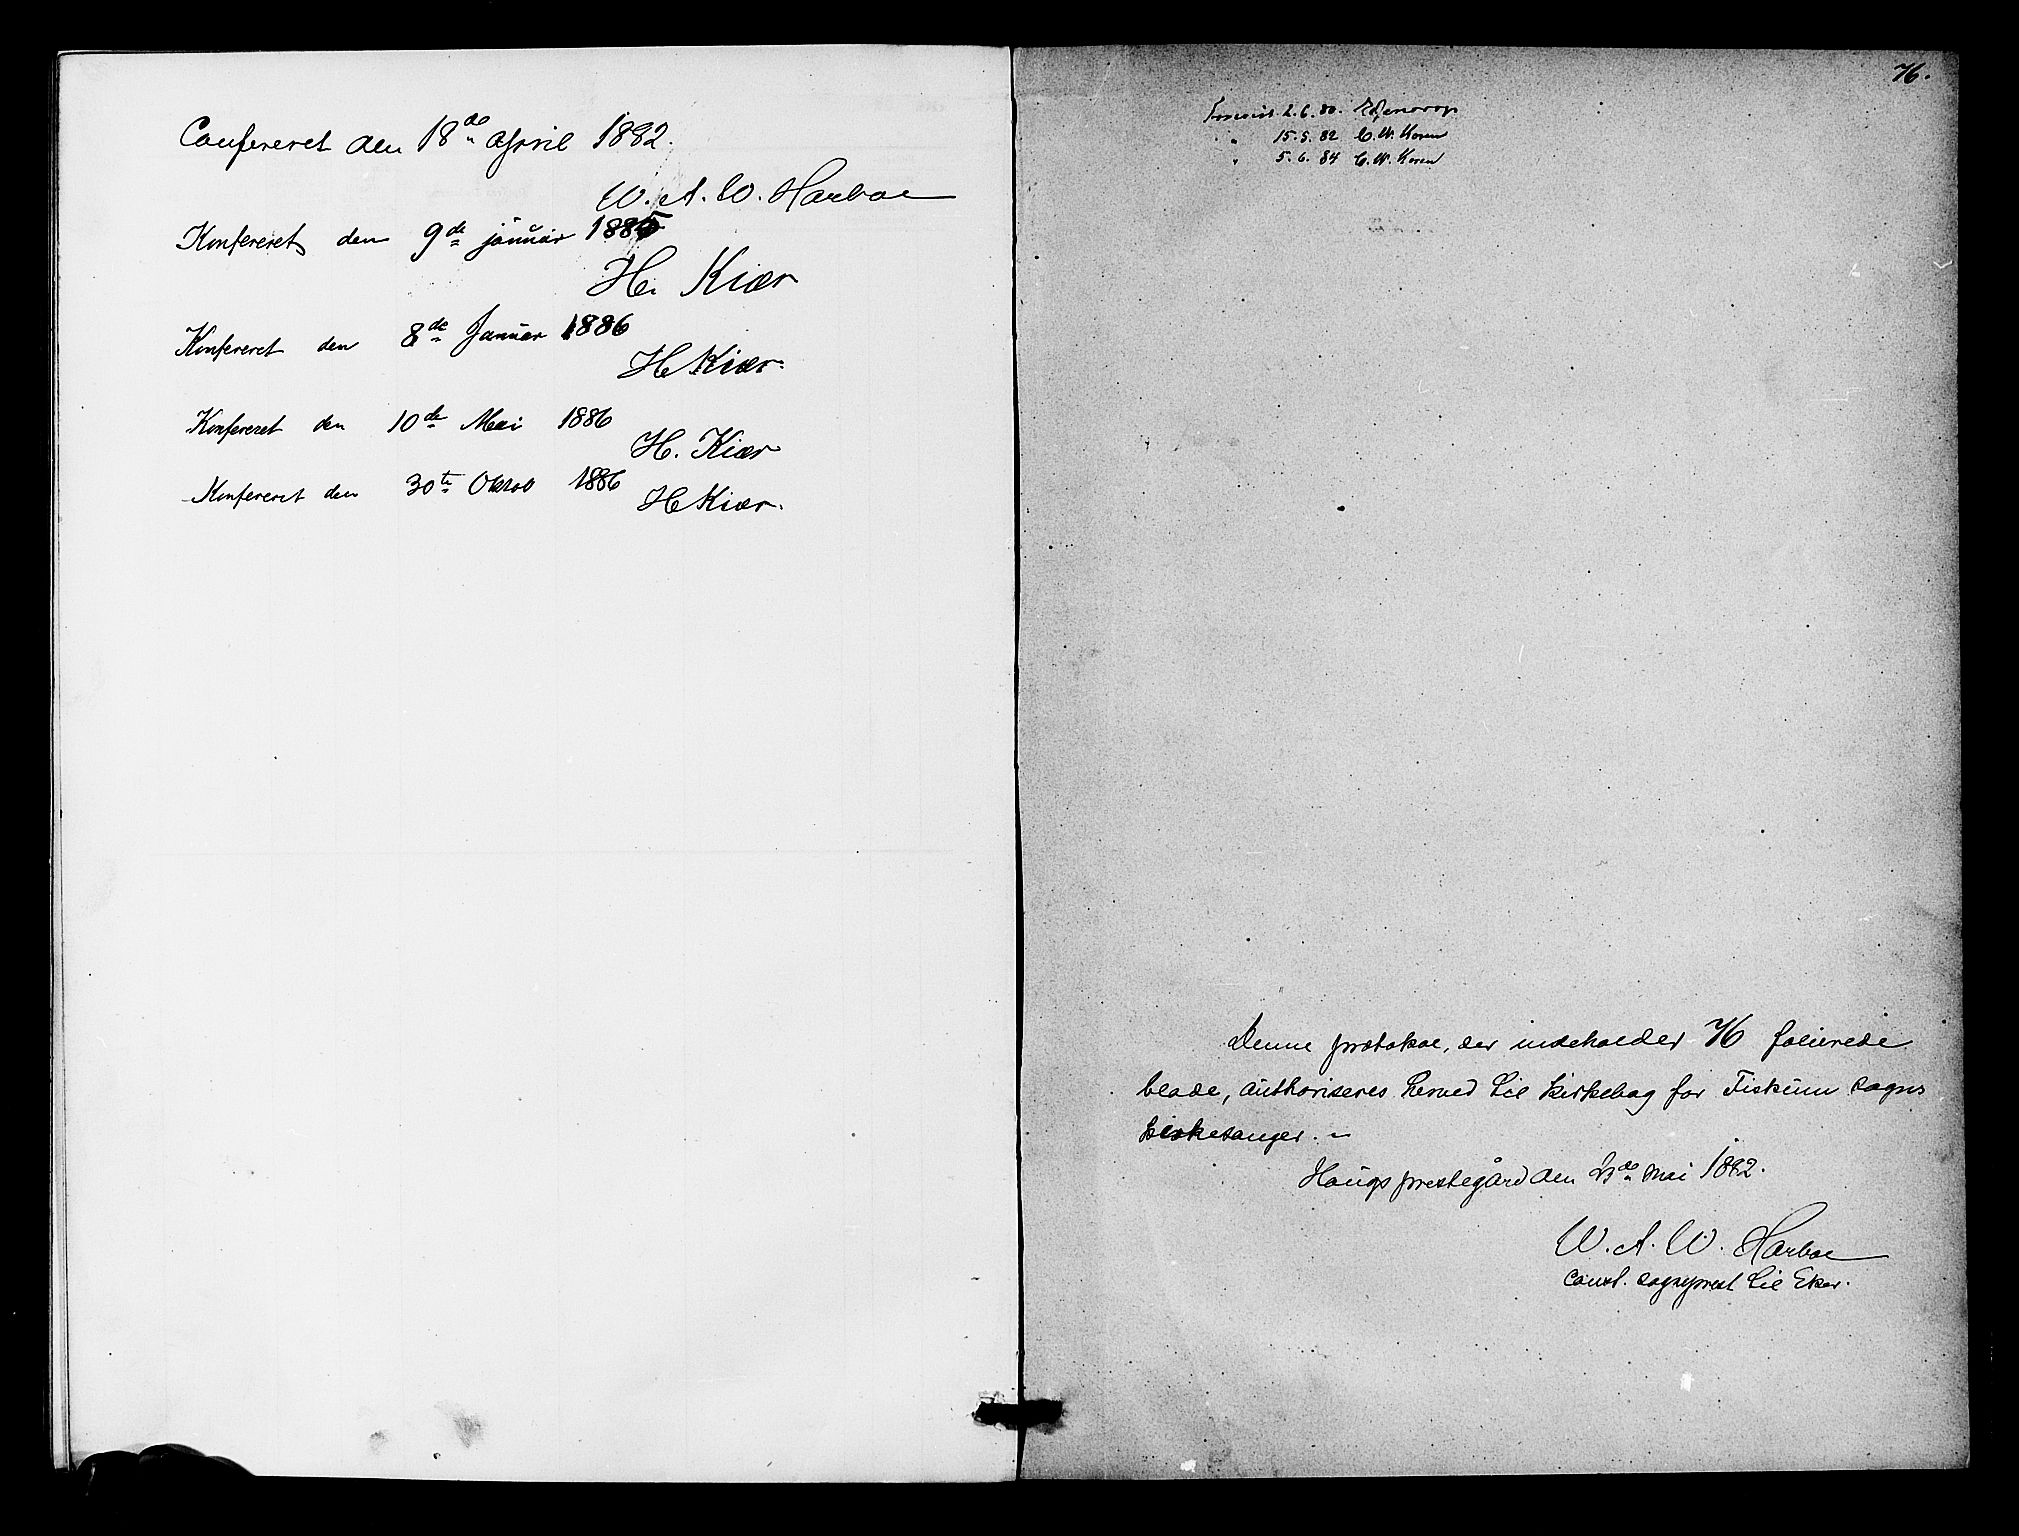 Confereret den 18de April 1882.
W. A. W. Harboe
Konfereret den 9de januar 1885
H. Kiær
Konfereret den 8de Januar 1886
H Kiær.
Konfereret den 10de Mai 1886
H. Kiær
Konfereret den 30te Oktob 1886
H Kiær.
76.
Forevist 2.6.80.
" 15.5.82 C. W. Koren
" 5.6.84 C. W. Koren
Denne protokol, der indeholder 76 folierede
blade, authoriseres herved til kirkebog for Fiskum sogns
kirkesanger. –
Haugs prestegård den de Mai 1882.
W. A. W. Harboe
const. sogneprest til Eker.